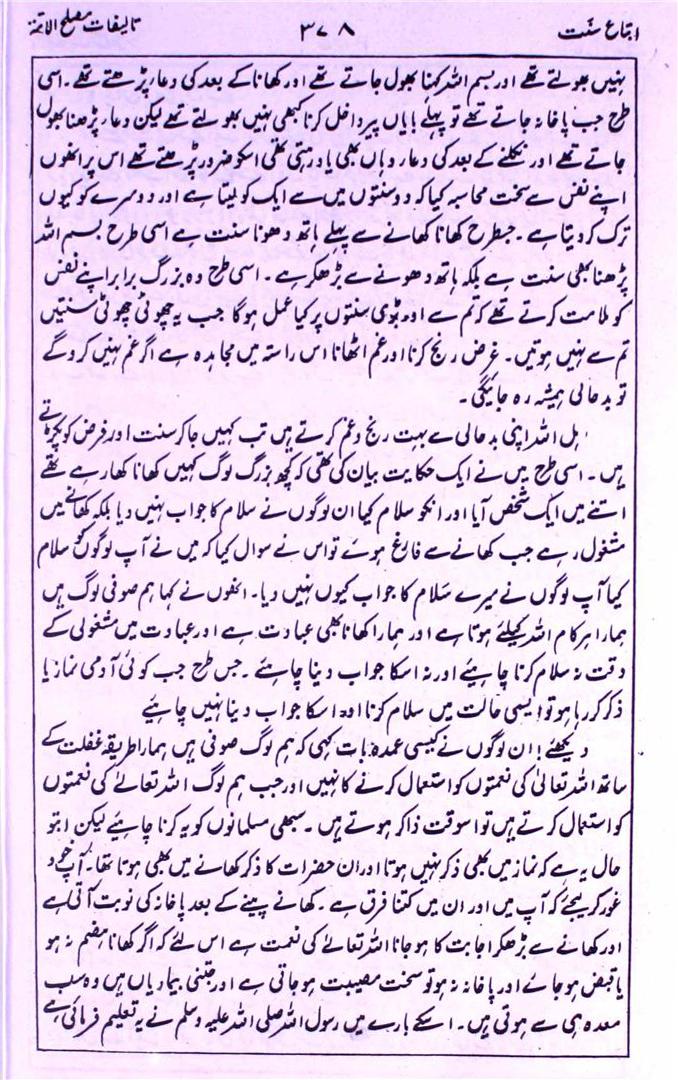 اتباع سنّت ۳۷۸ تالیفات مصلح الامۃ
نہیں بھولتے تھے اور بسم اللہ کہنا بھول جاتے تھے اور کھانا کے بعد کی دعا پڑھتے تھے۔ اسی
طرح جب پاخانہ جاتے تھے تو پہلے بایاں پیر داخل کرنا کبھی نہیں بھولتے تھے لیکن دعا پڑھنا بھول
جاتے تھے اور نکلنے کے بعد کی دعا وہاں بھی یاد رہتی تھی اسکو ضرور پڑھتے تھے اس پر انھوں
اپنے نفس سے سخت محاسبہ کیا کہ دو سنتوں میں سے ایک کو لیتا ہے اور دوسرے کو کیوں
ترک کر دیتا ہے۔ جسطرح کھانا کھانے سے پہلے ہاتھ دھونا سنت ہے اسی طرح بسم اللہ
پڑھنا بھی سنت ہے بلکہ ہاتھ دھونے سے بڑھکر ہے۔ اسی طرح وہ بزرگ برابر اپنے نفس
کو ملامت کرتے تھے کہ تم سے اور بڑی سنتوں پر کیا عمل ہوگا جب یہ چھوٹی چھوٹی سنتیں
تم سے نہیں ہوتیں۔ غرض رنج کرنا اور غم اٹھانا اس راستہ میں مجاہدہ ہے اگر غم نہیں کروگے
تو بدحالی ہمیشہ رہ جائیگی۔
اہل اللہ اپنی بدحالی سے بہت رنج و غم کرتے ہیں تب کہیں جاکر سنت اور فرض کو پکڑتے
ہیں۔ اسی طرح میں نے ایک حکایت بیان کی تھی کہ کچھ بزرگ لوگ کہیں کھانا کھا رہے تھے
اتنے میں ایک شخص آیا اور انکو سلام کیا ان لوگوں نے سلام کا جواب نہیں دیا بلکہ کھانے میں
مشغول رہے جب کھانے سے فارغ ہوئے تو اس نے سوال کیا کہ میں نے آپ لوگوں کو سلام
کیا آپ لوگوں نے میرے سلام کا جواب کیوں نہیں دیا۔ انھوں نے کہا ہم صوفی لوگ ہیں
ہمارا ہر کام اللہ کیلئے ہوتا ہے اور ہمارا کھانا بھی عبادت ہے اور عبادت میں مشغولی کے
وقت نہ سلام کرنا چاہیئے اور نہ اسکا جواب دینا چاہیئے۔ جس طرح جب کوئی آدمی نماز یا
ذکر کر رہا ہو تو ایسی حالت میں سلام کرنا اور اسکا جواب دینا نہیں چاہیئے
دیکھئے! ان لوگوں نے کیسی عمدہ بات کہی کہ ہم لوگ صوفی ہیں ہمارا طریقہ غفلت کے
ساتھ اللہ تعالیٰ کی نعمتوں کو استعمال کرنے کا نہیں اور جب ہم لوگ اللہ تعالےٰ کی نعمتوں
کو استعمال کرتے ہیں تو اسوقت ذاکر ہوتے ہیں۔ سبھی مسلمانوں کو یہ کرنا چاہیئے لیکن ابتو
حال یہ ہے کہ نماز میں بھی ذکر نہیں ہوتا اور ان حضرات کا ذکر کھانے میں بھی ہوتا تھا۔ آپ خود
غور کر لیجئے کہ آپ میں اور ان میں کتنا فرق ہے۔ کھانے پینے کے بعد پاخانہ کی نوبت آتی ہے
اور کھانے سے بڑھکر اجابت کا ہو جانا اللہ تعالےٰ کی نعمت ہے اس لئے کہ اگر کھانا ہضم نہ ہو
یا قبض ہو جائے اور پاخانہ نہ ہو تو سخت مصیبت ہو جاتی ہے اور جتنی بیماریاں ہیں وہ سب
معدہ ہی سے ہوتی ہیں۔ اسکے بارے میں رسول اللہ صلی اللہ علیہ وسلم نے یہ تعلیم فرمائی ہے